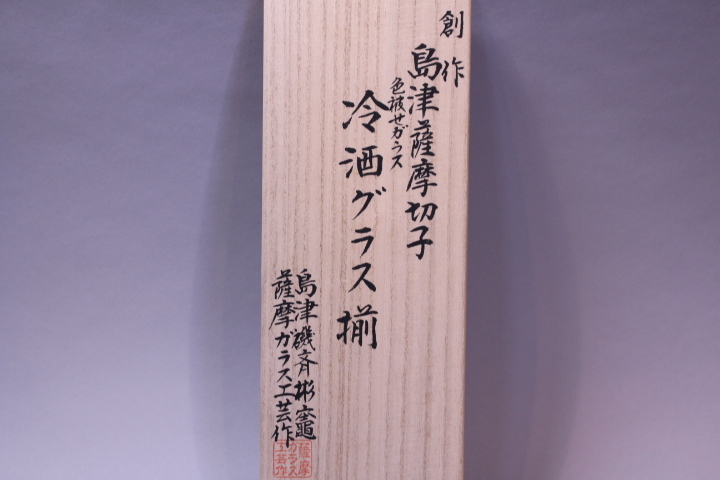 創作
島津薩摩切子
色被せガラス
冷酒グラス揃
島津磯斉彬竈
薩摩ガラス工芸作
薩摩
ガラス
工芸作